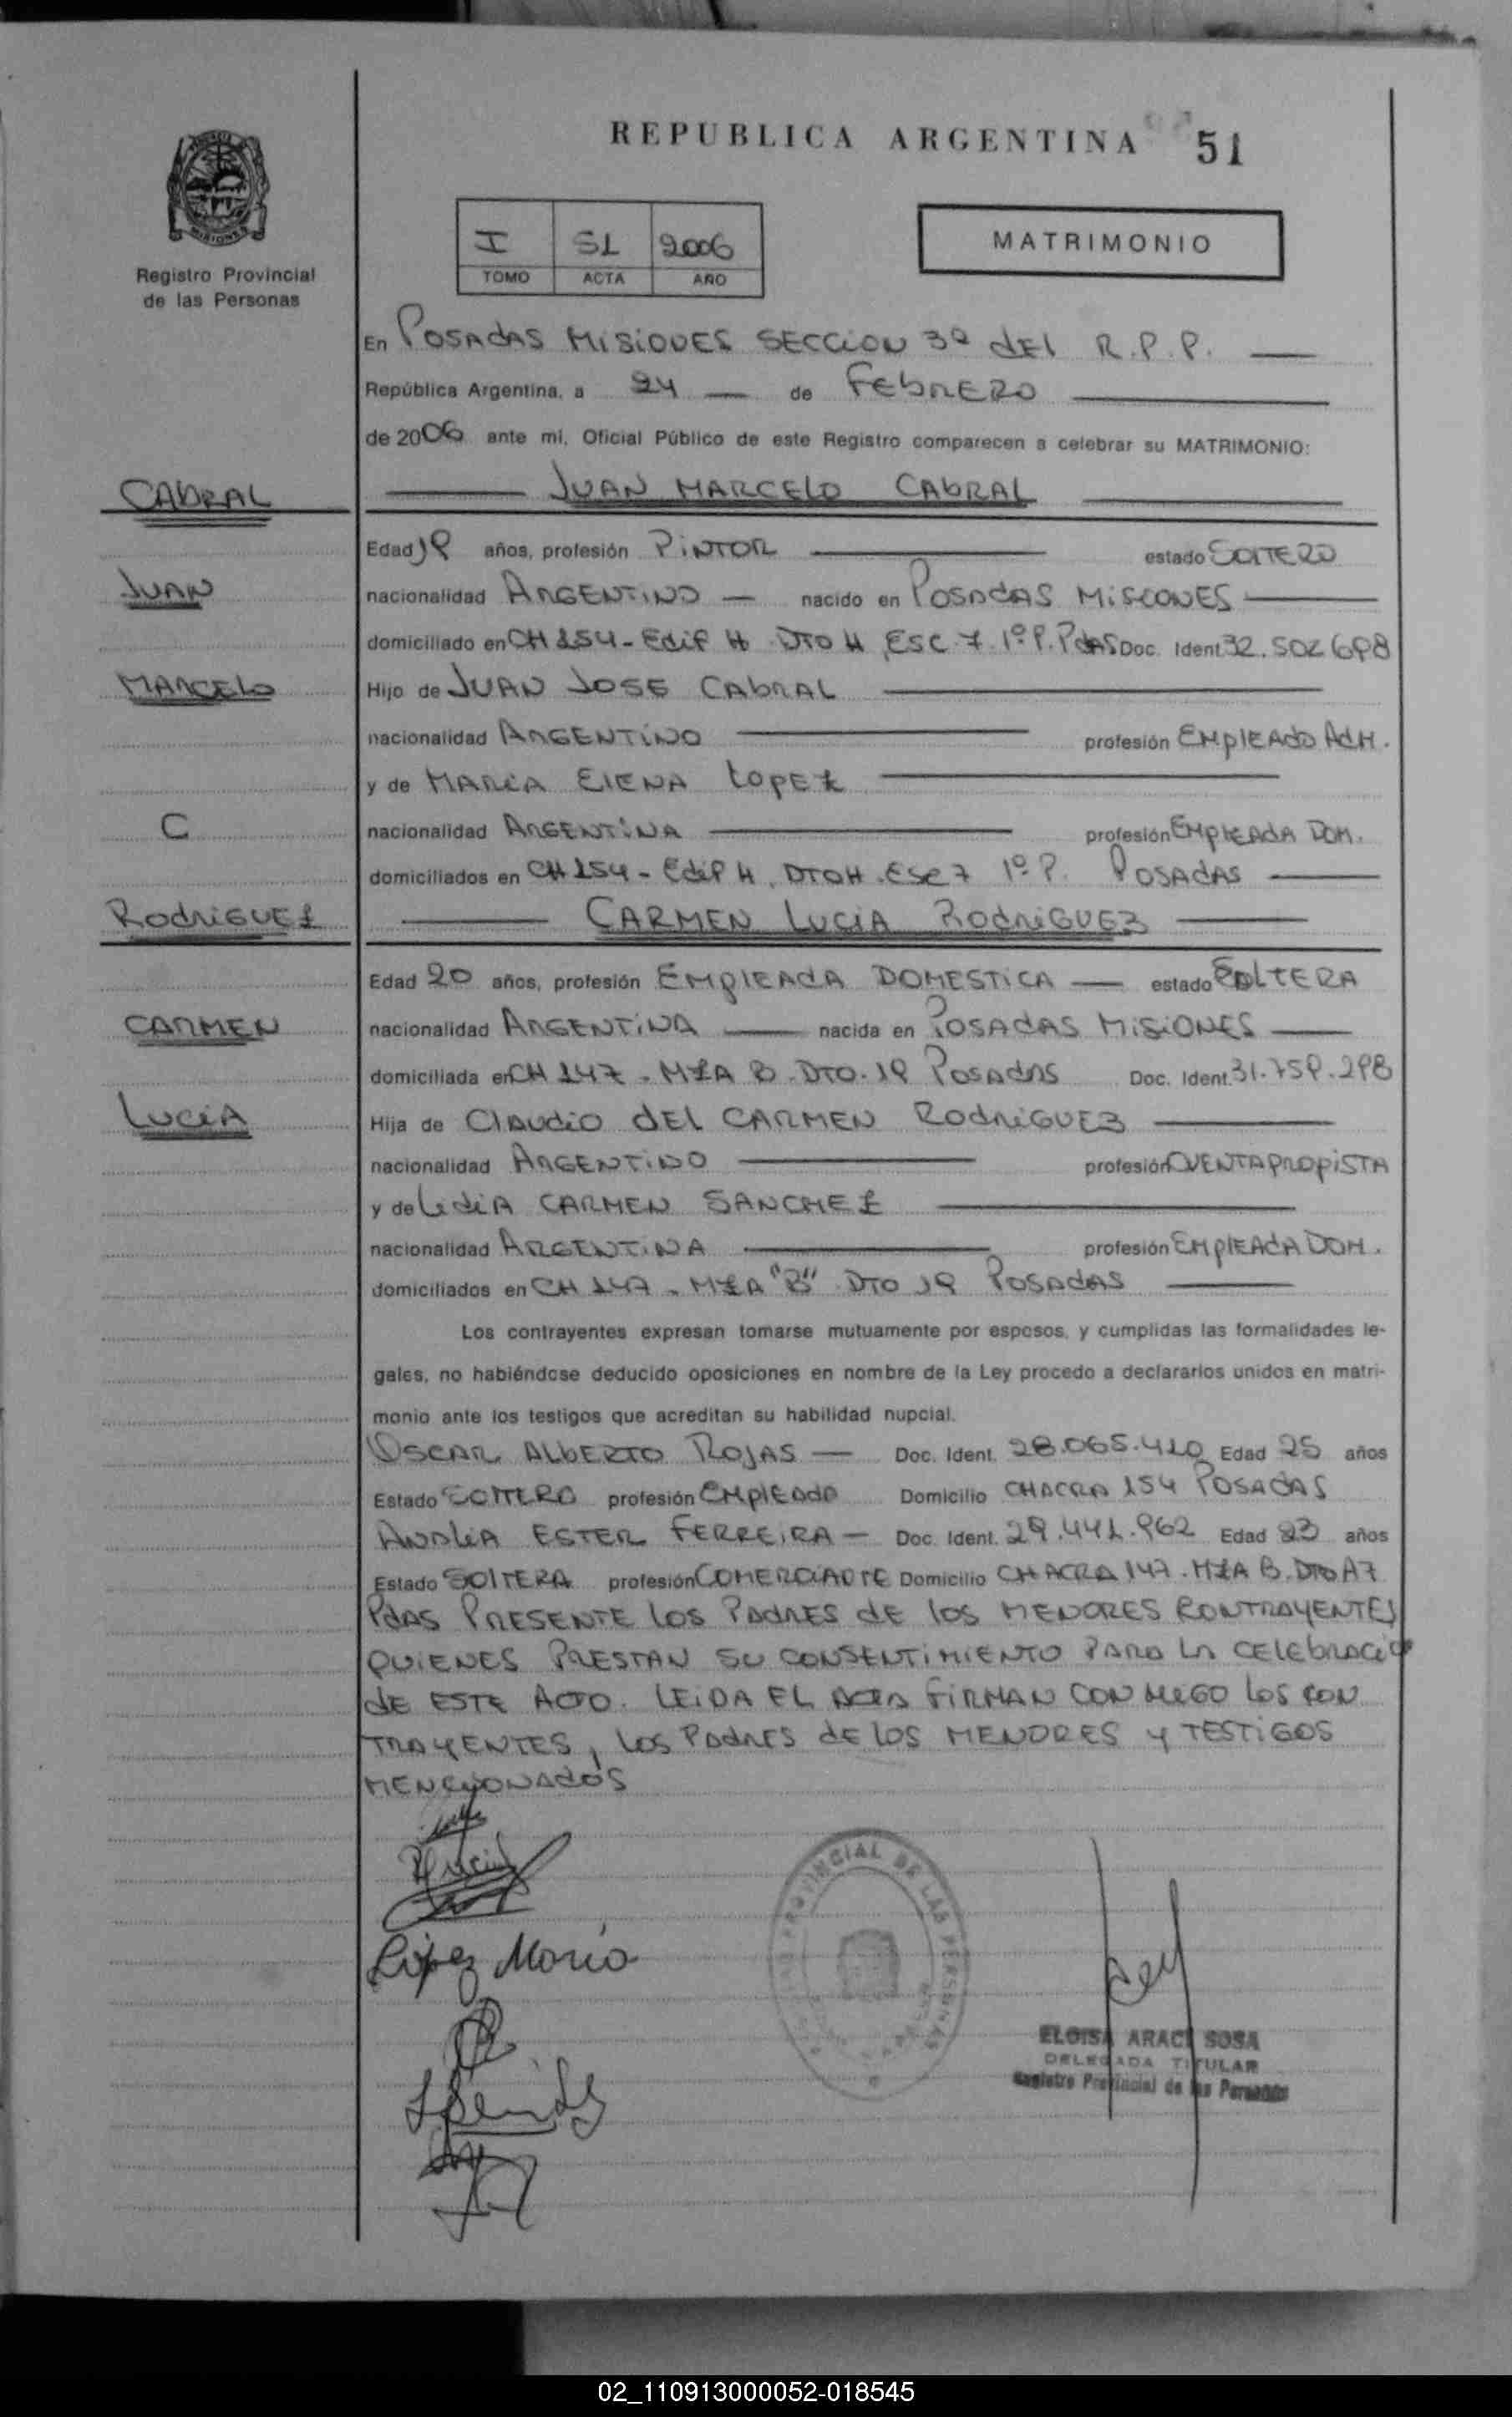 REPUBLICA ARGENTINA 51
MISIONES
Registro Provincial
de las Personas
I 51 2006
TOMO ACTA AÑO
MATRIMONIO
En POSADAS MISIONES SECCION 3ª DEL R.P.P.
República Argentina, a 24 de FEBRERO
de 2006 ante mi, Oficial Público de este Registro comparecen a celebrar su MATRIMONIO:
CABRAL JUAN MARCELO CABRAL
Edad 19 años, profesión PINTOR estado SOLTERO
JUAN nacionalidad ARGENTINO nacido en POSADAS MISIONES
domiciliado en CH 154 - Edif H DTO H, ESC. 7. 1º P. PdAS Doc. Ident. 32.502698
MARCELO Hijo de JUAN JOSE CABRAL
nacionalidad ARGENTINO profesión EMPLEADO ADM.
y de MARIA ELENA LOPEZ
C nacionalidad ARGENTINA profesión EMPLEADA DOM.
domiciliados en CH 154 - Edif H, DTO H. Esc 7 1º P. POSADAS
RODRIGUEZ CARMEN LUCIA RODRIGUEZ
Edad 20 años, profesión EMPLEADA DOMESTICA estado SOLTERA
CARMEN nacionalidad ARGENTINA nacida en POSADAS MISIONES
domiciliada en CH 147 - MZA B. DTO. 19 POSADAS Doc. Ident. 31.759.298
LUCIA Hija de CLAUDIO DEL CARMEN RODRIGUEZ
nacionalidad ARGENTINO profesión CUENTAPROPISTA
y de LIDIA CARMEN SANCHEZ
nacionalidad ARGENTINA profesión EMPLEADA DOM.
domiciliados en CH 147 - MZA "B" DTO 19 POSADAS
Los contrayentes expresan tomarse mutuamente por esposos, y cumplidas las formalidades le-
gales, no habiéndose deducido oposiciones en nombre de la Ley procedo a declararlos unidos en matri-
monio ante los testigos que acreditan su habilidad nupcial.
OSCAR ALBERTO ROJAS — Doc. Ident. 28.065.410 Edad 25 años
Estado SOLTERO profesión EMPLEADO Domicilio CHACRA 154 POSADAS
ANALIA ESTER FERREIRA — Doc. Ident. 29.441.962 Edad 23 años
Estado SOLTERA profesión COMERCIANTE Domicilio CHACRA 147. MZA B. DTO A7
PdAS PRESENTE LOS PADRES DE LOS MENORES CONTRAYENTES
QUIENES PRESTAN SU CONSENTIMIENTO PARA LA CELEBRACIO
DE ESTE ACTO. LEIDA EL ACTA FIRMAN CON MIGO LOS CON
TRAYENTES, LOS PADRES DE LOS MENORES Y TESTIGOS
MENCIONADOS
López María
PROVINCIAL DE LAS PERSONAS
ELOISA ARACI SOSA
DELEGADA TITULAR
Registro Provincial de las Personas
02_110913000052-018545